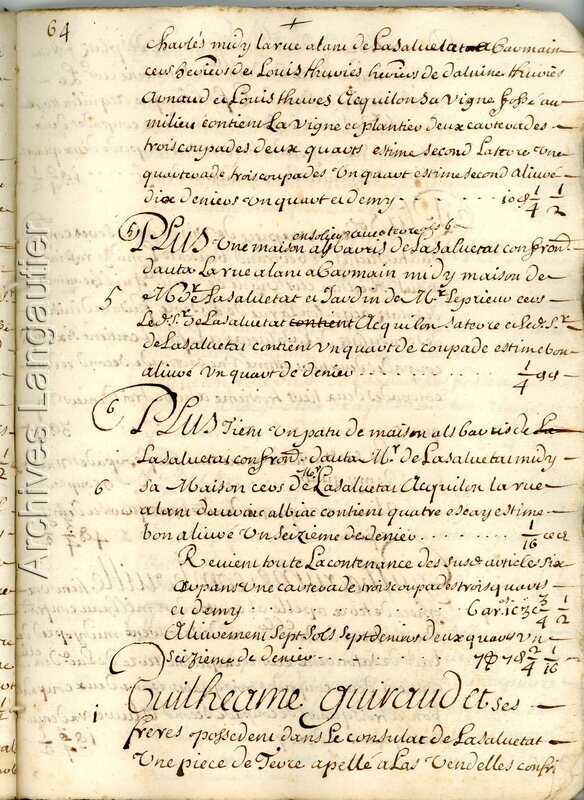 64
charles midy la rue alant de Lasalvetat a Carmain
cers heritiers de Louis thuries heritiers de dalvine thuries
Arnaud et Louis thuries Acquilon sa vigne fossé au
milieu contient La vigne et plantier deux carterades
trois coupades deux quarts estime second La terre une
quarterade trois coupades Un quart estime second alivré
dix deniers un quart et demy 10 d 1/4 1/2
5 PLUS Une maison als barris de Lasalvetat confrond.
en solier avec terre
dauta La rue alant a Carmain midy maison de
5 Mr de Lasalvetat et Jardin de Mr Le prieur cers
Led. Sr de Lasalvetat contient Acquilon sa terre et Led. Sr
de Lasalvetat contient un quart de coupade estime bon
alivré Un quart de denier 1/4
6 PLUS Tient Un patu de maison als barris de La
Lasalvetat confrond. dauta Mr de Lasalvetat midy
6 sa Maison cers Mr de Lasalvetat Acquilon la rue
alant albiac contient quatre escay estime
bon alivré Un seizieme de denier 1/16
Revient toute La contenance des susd. article six
arpans Une carterade trois coupades trois quarts
et demy 6 ar. 1c 3c 3/4 1/2
Alivrement sept sols sept deniers deux quarts Un
seizieme de denier 7 7 d 2/4 1/16
1 Guilheaume guiraud et ses
freres possedent dans Le consulat de Lasalvetat
Une piece de Terre apellé a Las Vendelles confri
Archives Langautier